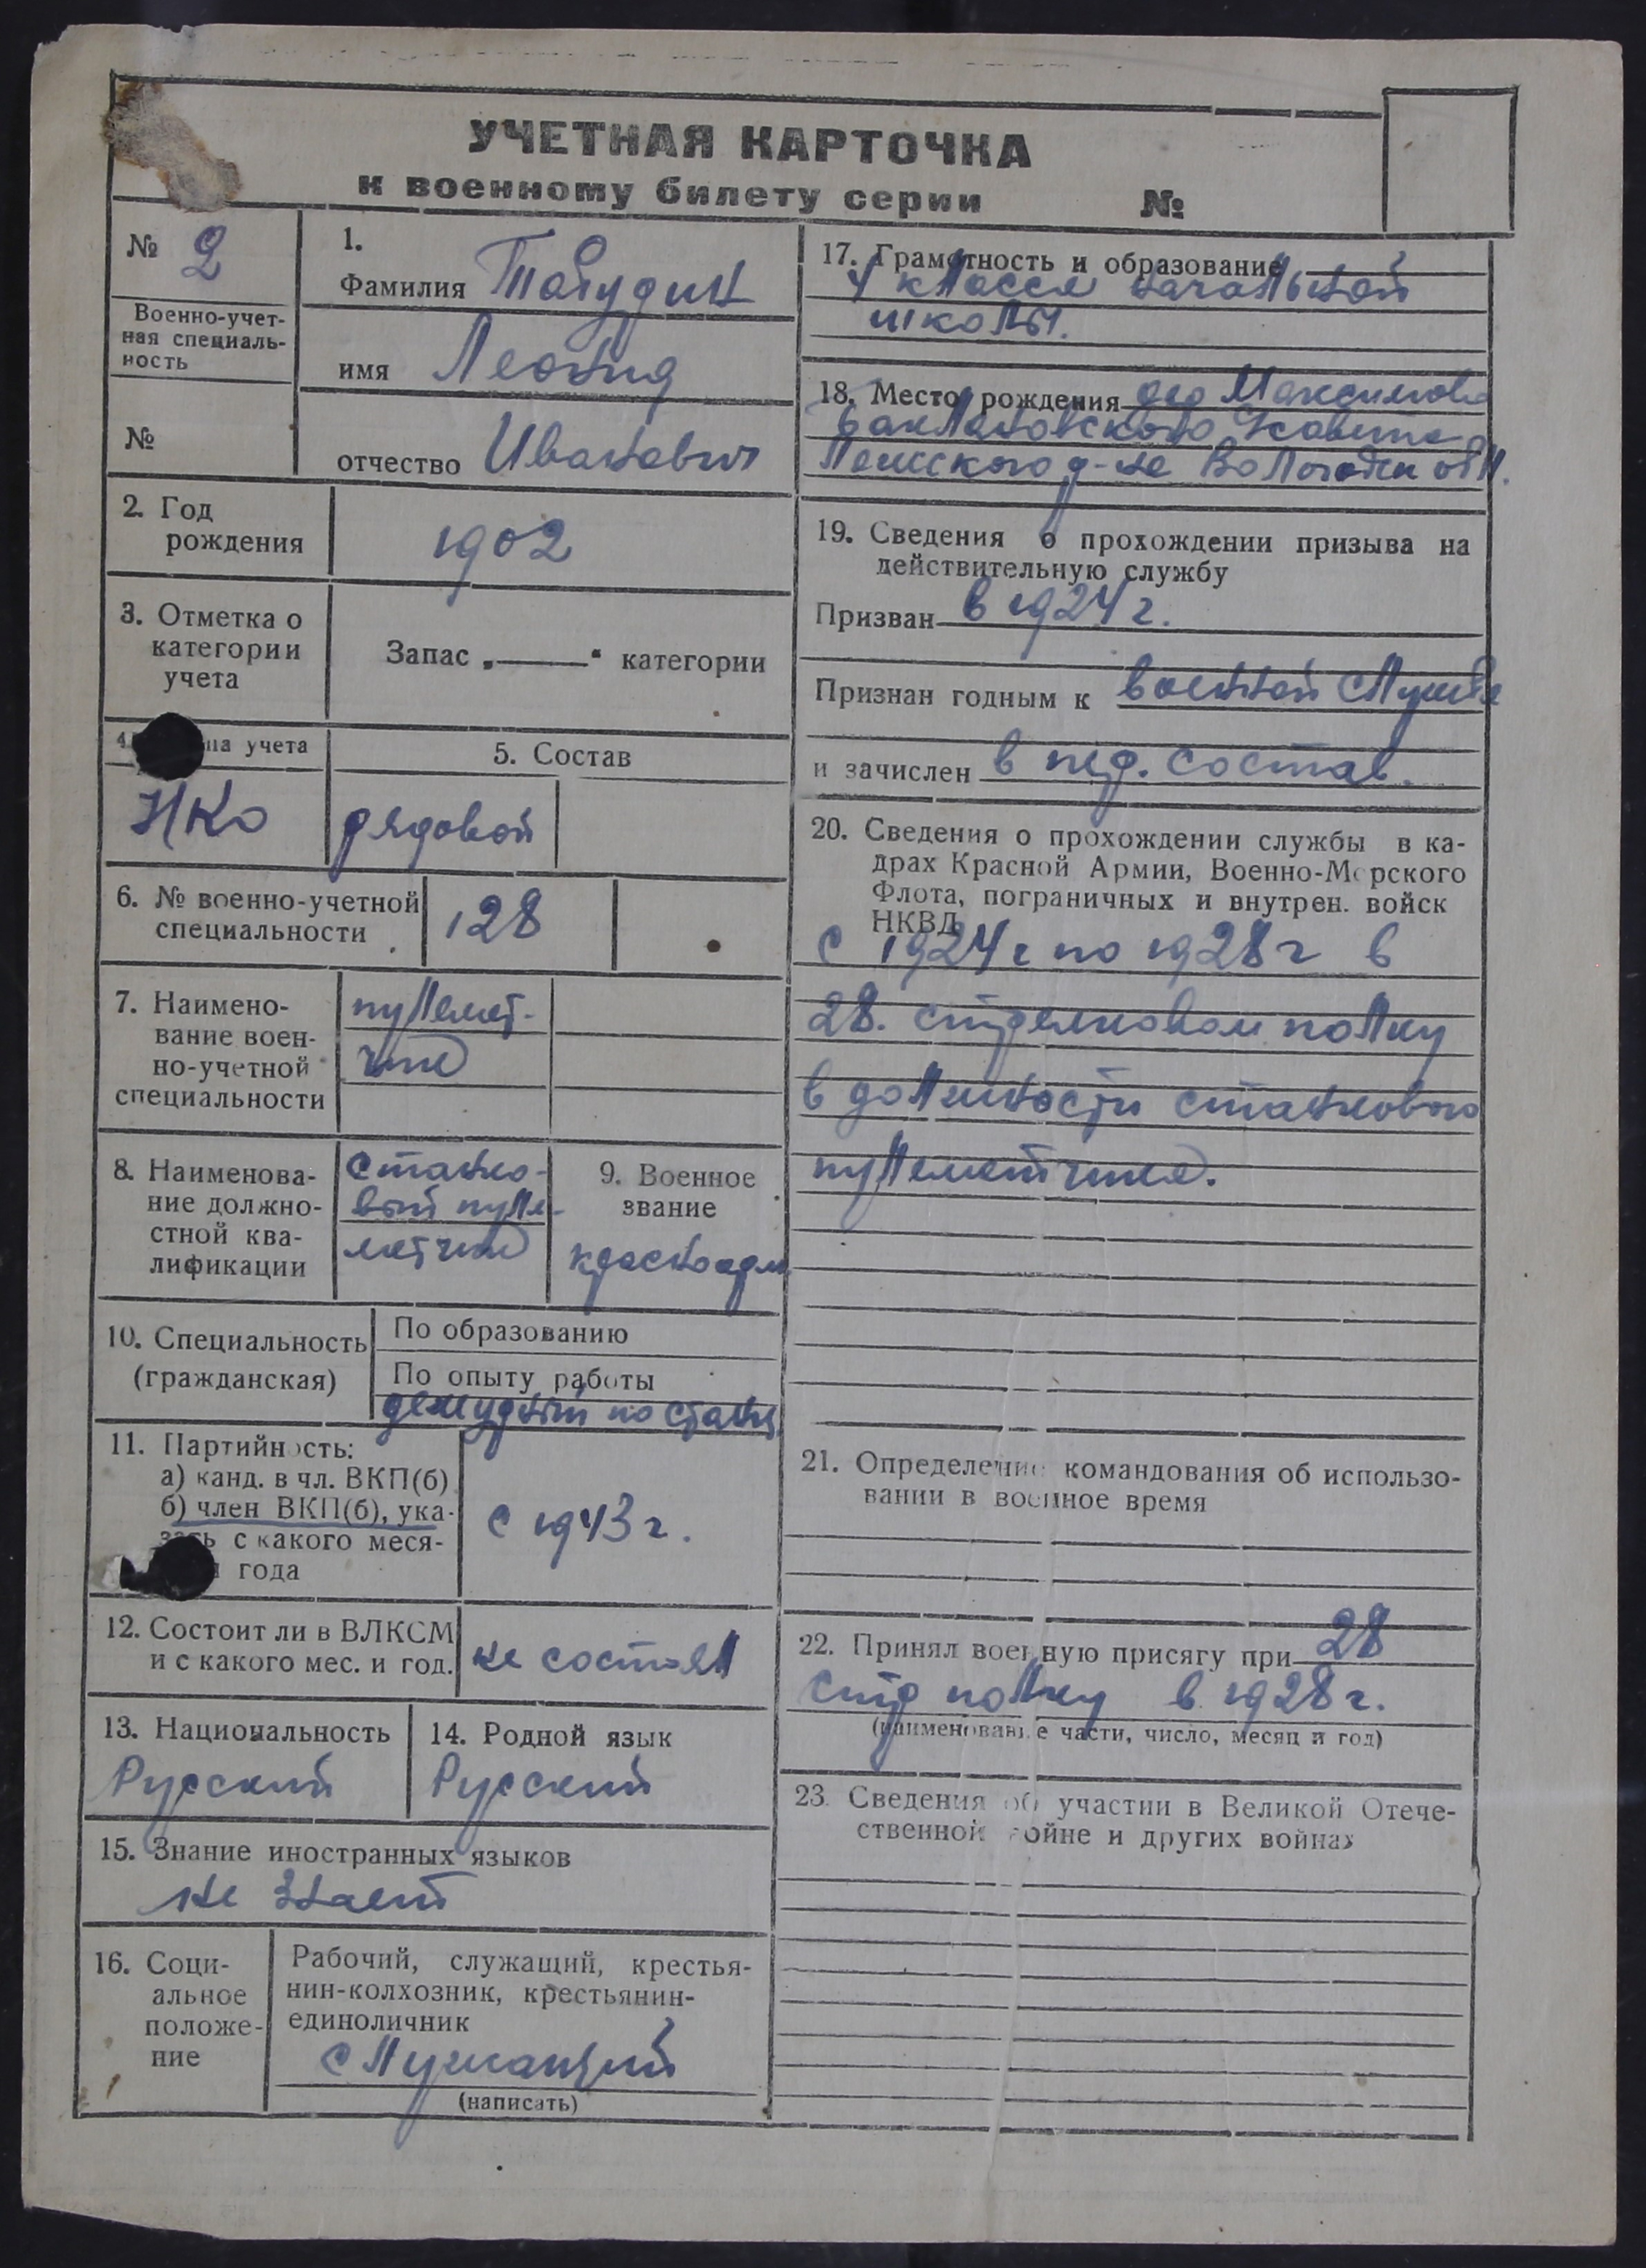 УЧЕТНАЯ КАРТОЧКА
к военному билету серии №
№ 2
Военно-учет-
ная специаль-
ность
№
1.
Фамилия
имя Леонид
отчество Иванович
2. Год
рождения
1902
3. Отметка о
категории
учета
Запас „ “ категории
4. па учета
НКО
5. Состав
рядовой
6. № военно-учетной
специальности
128
7. Наимено-
вание воен-
но-учетной
специальности
пулемет-
чик
8. Наименова-
ние должно-
стной ква-
лификации
станко-
вый пуле-
метчик
9. Военное
звание
красноарм
10. Специальность
(гражданская)
По образованию
По опыту работы
дежурный по станц
11. Партийность:
а) канд. в чл. ВКП(б)
б) член ВКП(б), ука-
зать с какого меся-
года
с 1943 г.
12. Состоит ли в ВЛКСМ
и с какого мес. и год.
не состоял
13. Национальность
Русский
14. Родной язык
Русский
15. Знание иностранных языков
не знает
16. Соци-
альное
положе-
ние
Рабочий, служащий, крестья-
нин-колхозник, крестьянин-
единоличник
служащий
(написать)
17. Грамотность и образование
4 класса начальной
школы.
18. Место рождения дер Максимово
Баклановского Совета
р-на Вологодск обл.
19. Сведения о прохождении призыва на
действительную службу
Призван в 1924 г.
Признан годным к военной службе
и зачислен в пер. состав
20. Сведения о прохождении службы в ка-
драх Красной Армии, Военно-Морского
Флота, пограничных и внутрен. войск
НКВД
с 1924 г по 1928 г в
28. стрелковом полку
в должности станкового
пулеметчика.
21. Определение командования об использо-
вании в военное время
22. Принял военную присягу при 28
стр полку в 1928 г.
(наименование части, число, месяц и год)
23. Сведения об участии в Великой Отече-
ственной войне и других войнах